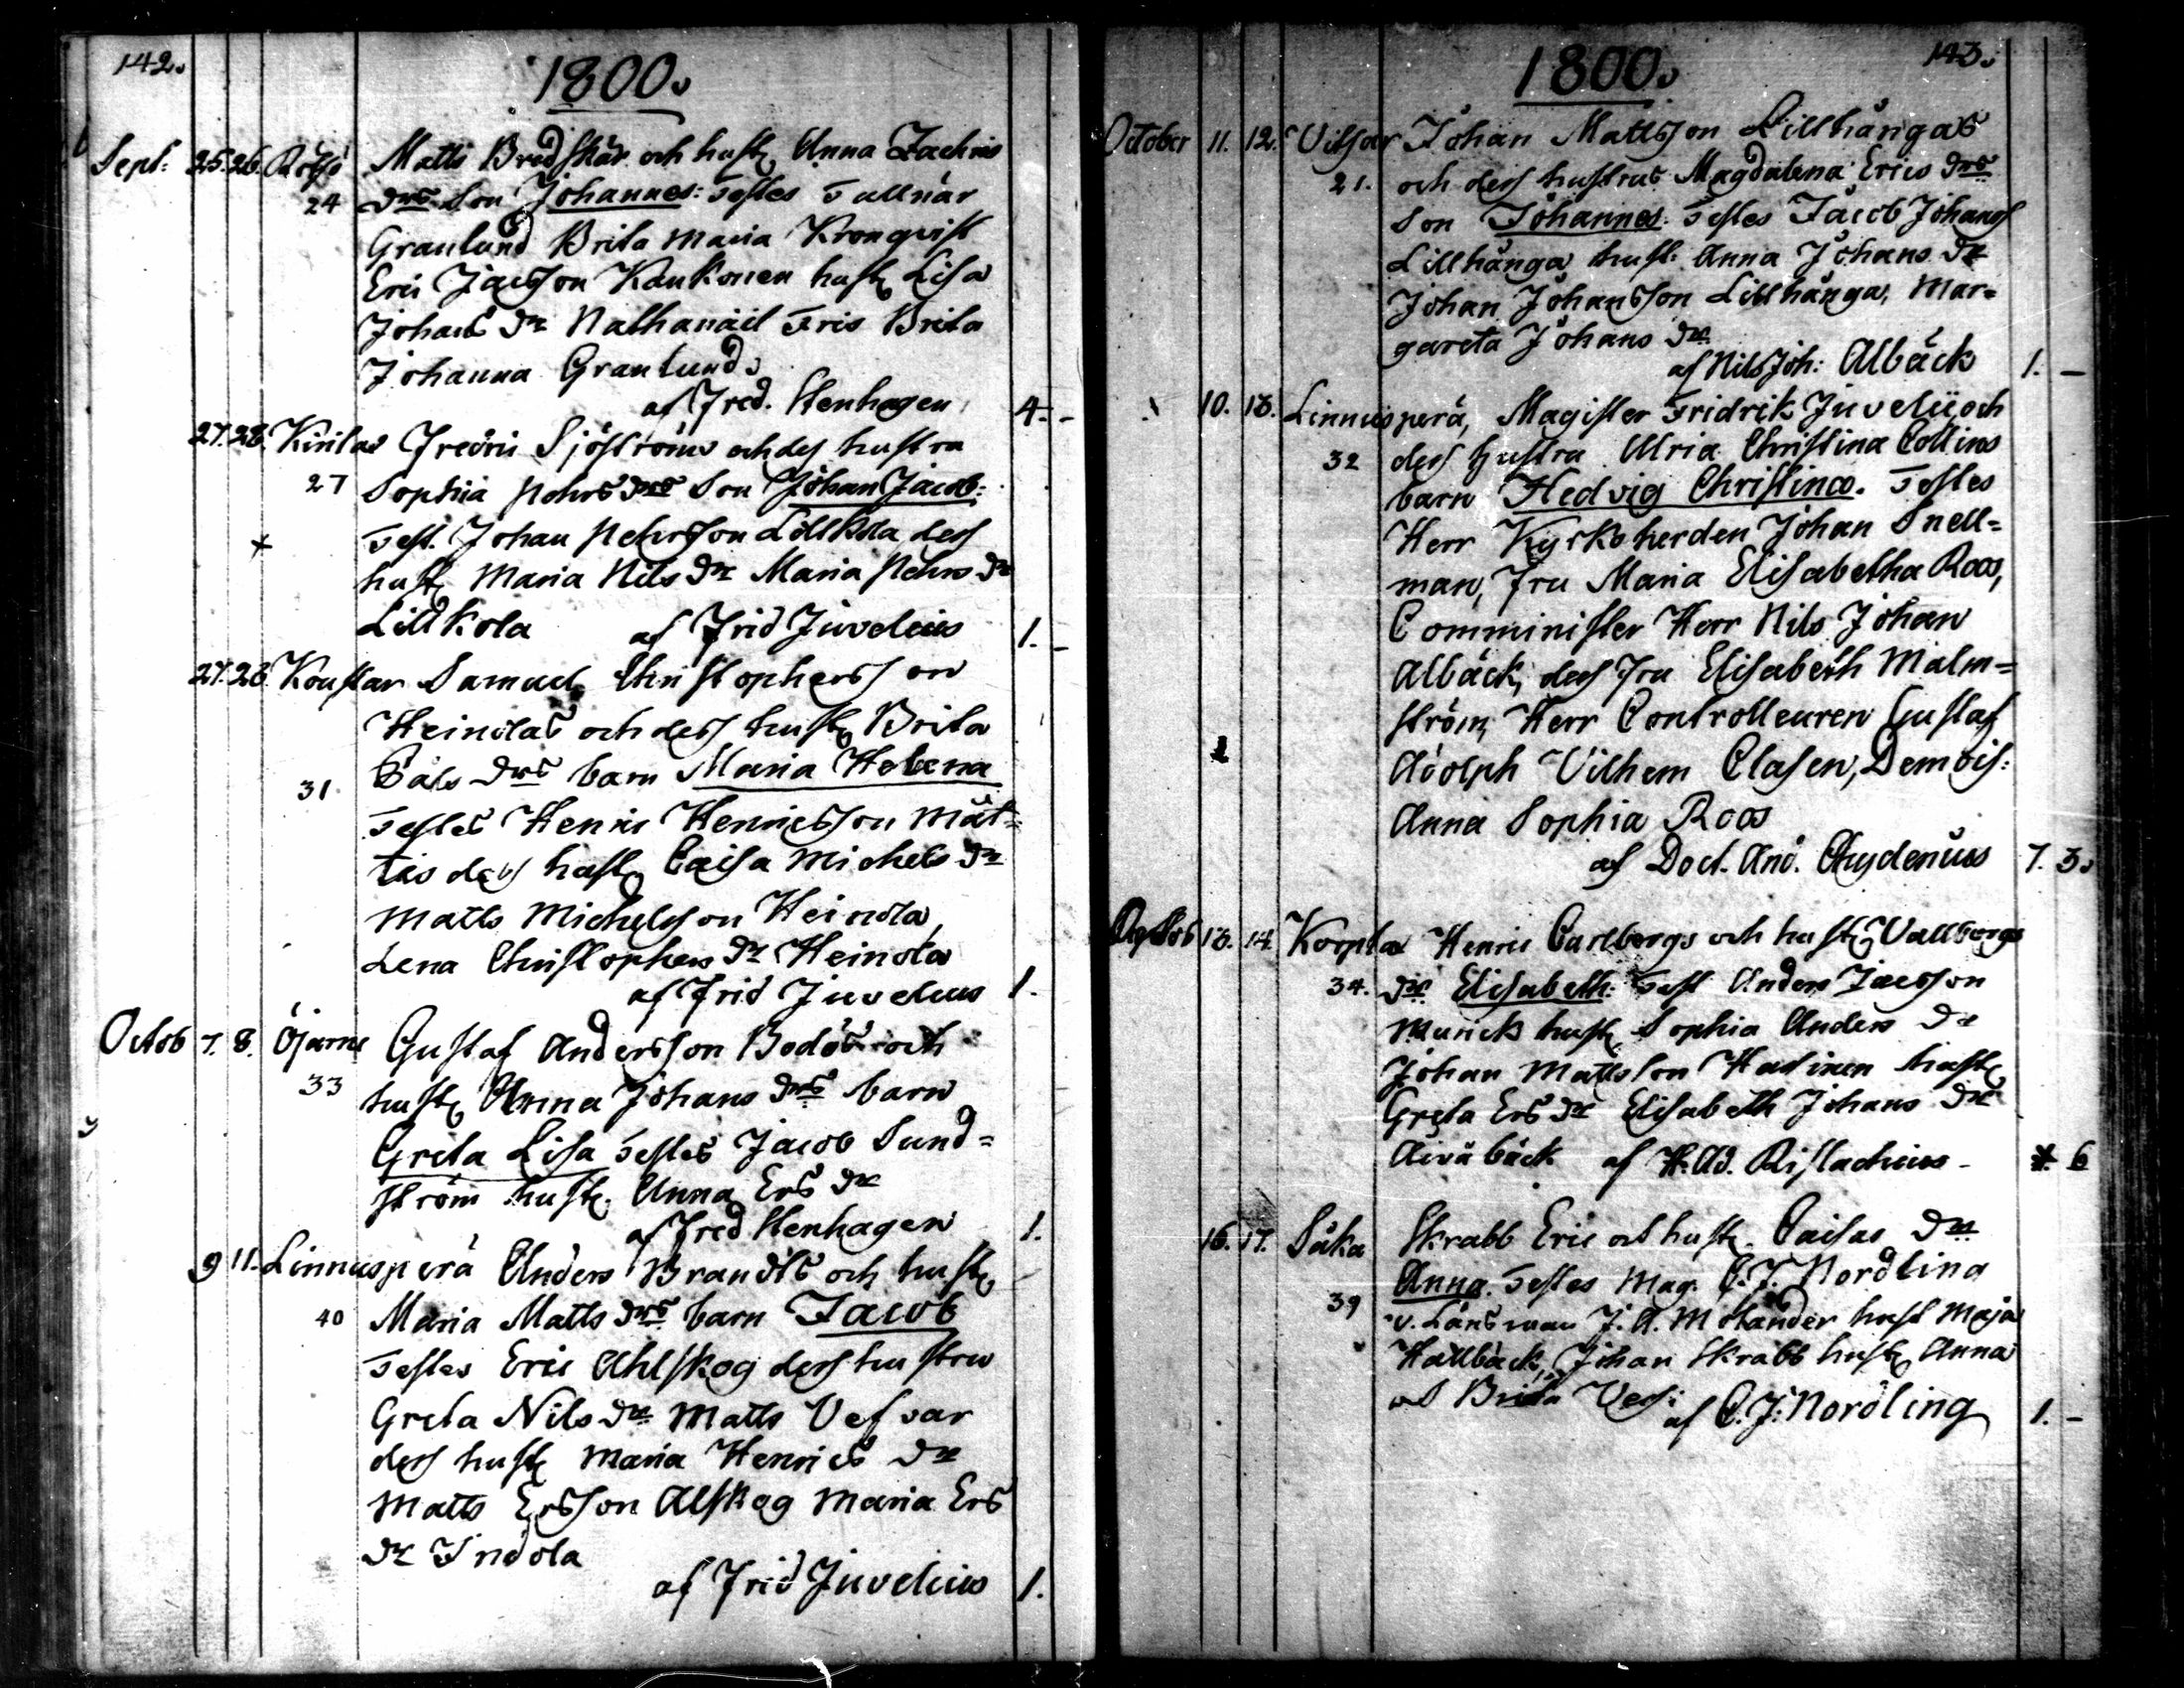 142.
1800.
Sept: 25. 26. Rödsö Matts Bredskär och hust. Anna Zachris
24 drs Son Johannes: Testes Tullnär
Granlund Brita Maria Kronqvist
Eric Jacsson Kaukonen hust. Lisa
Johans dr Nathanäel Fris Brita
Johanna Granlund.
af Fred. Stenhagen 4. -
27. 28. Kirilas Fredric Sjöströms och dess hustru
27 Sophia Pehrs drs Son Johan Jacob:
Test. Johan Pehrsson Lillkola dess
hust. Maria Nils dr Maria Pehrs dr
Lillkola af Frid Juvelius 1. -
27. 28. Samuel Christophersson
Heinolas och dess hust. Brita
31 Påls drs barn Maria Helena
Testes Henric Henricsson Mät=
tas dess hust. Caisa Michels dr
Matts Michelsson Heinola,
Lena Christophers dr Heinola
af Frid Juvelius 1.
Octob 7. 8. Öjarne Gustaf Andersson Bodös och
33 hust. Anna Johans drs barn
Greta Lisa Testes Jacob Sund=
ström hust. Anna Ers dr
af Fred Stenhagen 1.
9 11. Linnusperä Anders Brandts och hust.
40 Maria Matts drs barn Jacob
Testes Eric Ahlskog dess hustru
Greta Nils dr Matts Vefvar
dess hust. Maria Henrics dr
Matts Ersson Alskog Maria Ers
dr Indola
af Frid Juvelius 1.
143.
1800.
October 11. 12. Vitsar Johan Mattsson Lillhångas
21. och dess hustrus Magdalena Erics drs
Son Johannes: Testes Jacob Johans
Lillhånga hust: Anna Johans dr
Johan Johansson Lillhånga, Mar=
gareta Johans dr
af Nils Joh: Albäck 1. -
10. 13. Linnusperä, Magister Fridrik Juvelii och
32 dess hustru Ulrica Christina Collins
barn Hedvig Christina. Testes
Herr Kyrkoherden Johan Snell=
man, Fru Maria Elisabetha Roos,
Comminister Herr Nils Johan
Albäck, dess Fru Elisabeth Malm=
ström, Herr Controlleuren Gustaf
Adolph Vilhem Clasen, Demois:
Anna Sophia Roos
af Doct. And. Chydenius 7. 3.
13. 14. Korpla Henric Carlborgs och hust. Vallborgs
34. dr Elisabeth: Test Anders Jacsson
Murick hust. Sophia Anders dr
Johan Mattsson Hadinen hust.
Greta Ers dr Elisabeth Johans dr
Åivåbäck af H. Ad. Ristachius - 6
16. 17. Såka Skrabb Eric och hust. Caisas dr
39 Anna. Testes Mag. C. J. Nordling
v. Länsman J. A. Molander hust Maja
Hällback, Johan Skrabb hust. Anna
och Brita
af C. J. Nordling 1. -